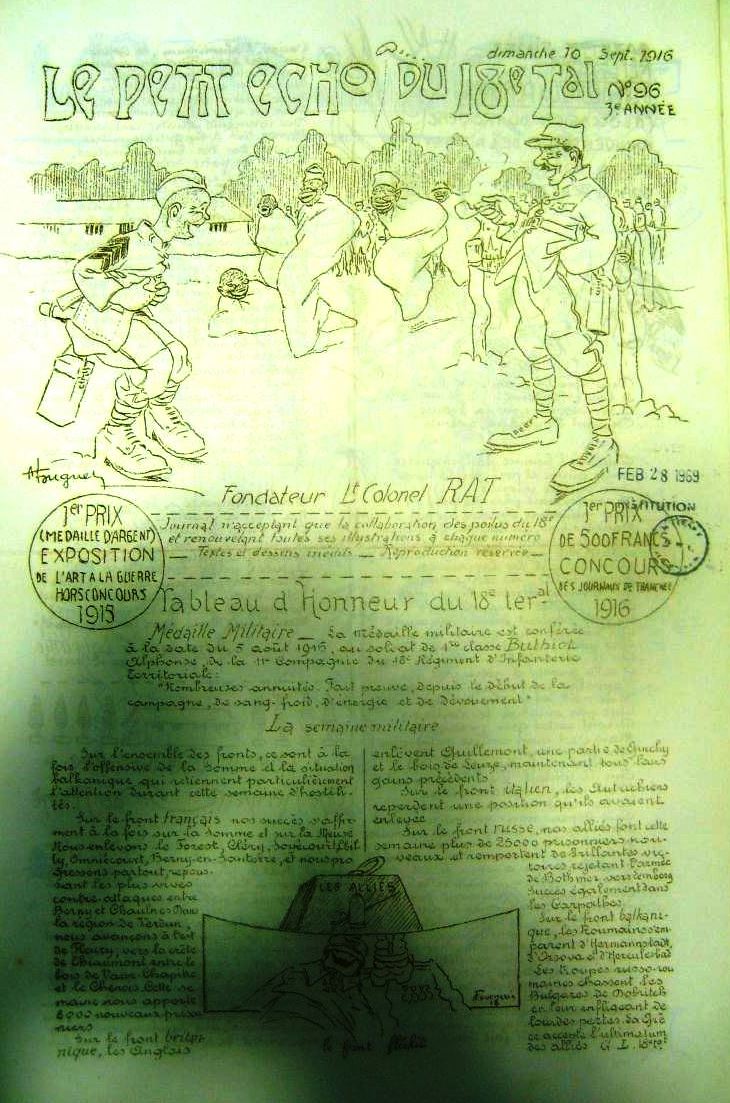 dimanche 10 Sept. 1916
Le Petit Echo du 18e Tal
N°96
3e ANNÉE
Fondateur Lt Colonel RAT
FEB 28 1969
1er PRIX
(MEDAILLE D'ARGENT)
EXPOSITION
DE L'ART A LA GUERRE
HORS CONCOURS
1915
Journal n'acceptant que la collaboration des poilus du 18e
et renouvelant toutes ses illustrations à chaque numéro
Textes et dessins inédits — Reproduction réservée —
1er PRIX
DE 500 FRANCS
CONCOURS
DES JOURNAUX DE TRANCHÉE
1916
Tableau d'Honneur du 18e ter.al
Médaille Militaire — La médaille militaire est conférée
à la date du 5 août 1916, au soldat de 1ère classe
Alphonse, de la 11e Compagnie du 18e Régiment d'Infanterie
Territoriale:
"Nombreuses annuités. Fait preuve, depuis le début de la
campagne, de sang-froid, d'énergie et de dévouement"
La semaine militaire
Sur l'ensemble des fronts, ce sont à la
fois l'offensive de la Somme et la situation
balkanique qui retiennent particulièrement
l'attention durant cette semaine d'hostili-
tés.
Sur le front français nos succès s'affir-
ment à la fois sur la Somme et sur la Meuse
Nous enlevons le Forest, Cléry, Soyécourt, Chil-
ly, Omniécourt, Berny-en-Santerre, et nous pro
gressons partout, repous-
sant les plus vives
contre-attaques entre
Berny et Chaulnes. Dans
la région de Verdun,
nous avançons à l'est
de Fleury, vers la crête
de Thiaumont, entre le
bois de Vaux-Chapitre
et le Chenois. Cette se
maine nous apporte
8000 nouveaux prison
niers
Sur le front britan
nique, les Anglais
enlèvent Guillemont, une partie de Guinchy
et le bois de Leuze, maintenant tous leurs
gains précédents
Sur le front italien, les Autrichiens
reperdent une position qu'ils avaient
enlevée
Sur le front russe, nos alliés font cette
semaine plus de 25000 prisonniers nou-
veaux et remportent de brillantes vic-
toires rejetant l'armée
de Bothmer vers Lemberg
Succès également dans
les Carpathes.
Sur le front balkani-
que, les Roumains s'em
parent d'Hermannstadt,
d'Orsova et d'Herculesbad
Les troupes russo-rou
maines chassent les
Bulgares de Dobritch
en leur infligeant de
lourdes pertes. La Grè
ce accepte l'ultimatum
des alliés G. L.
LES ALLIÉS
le front fléchit